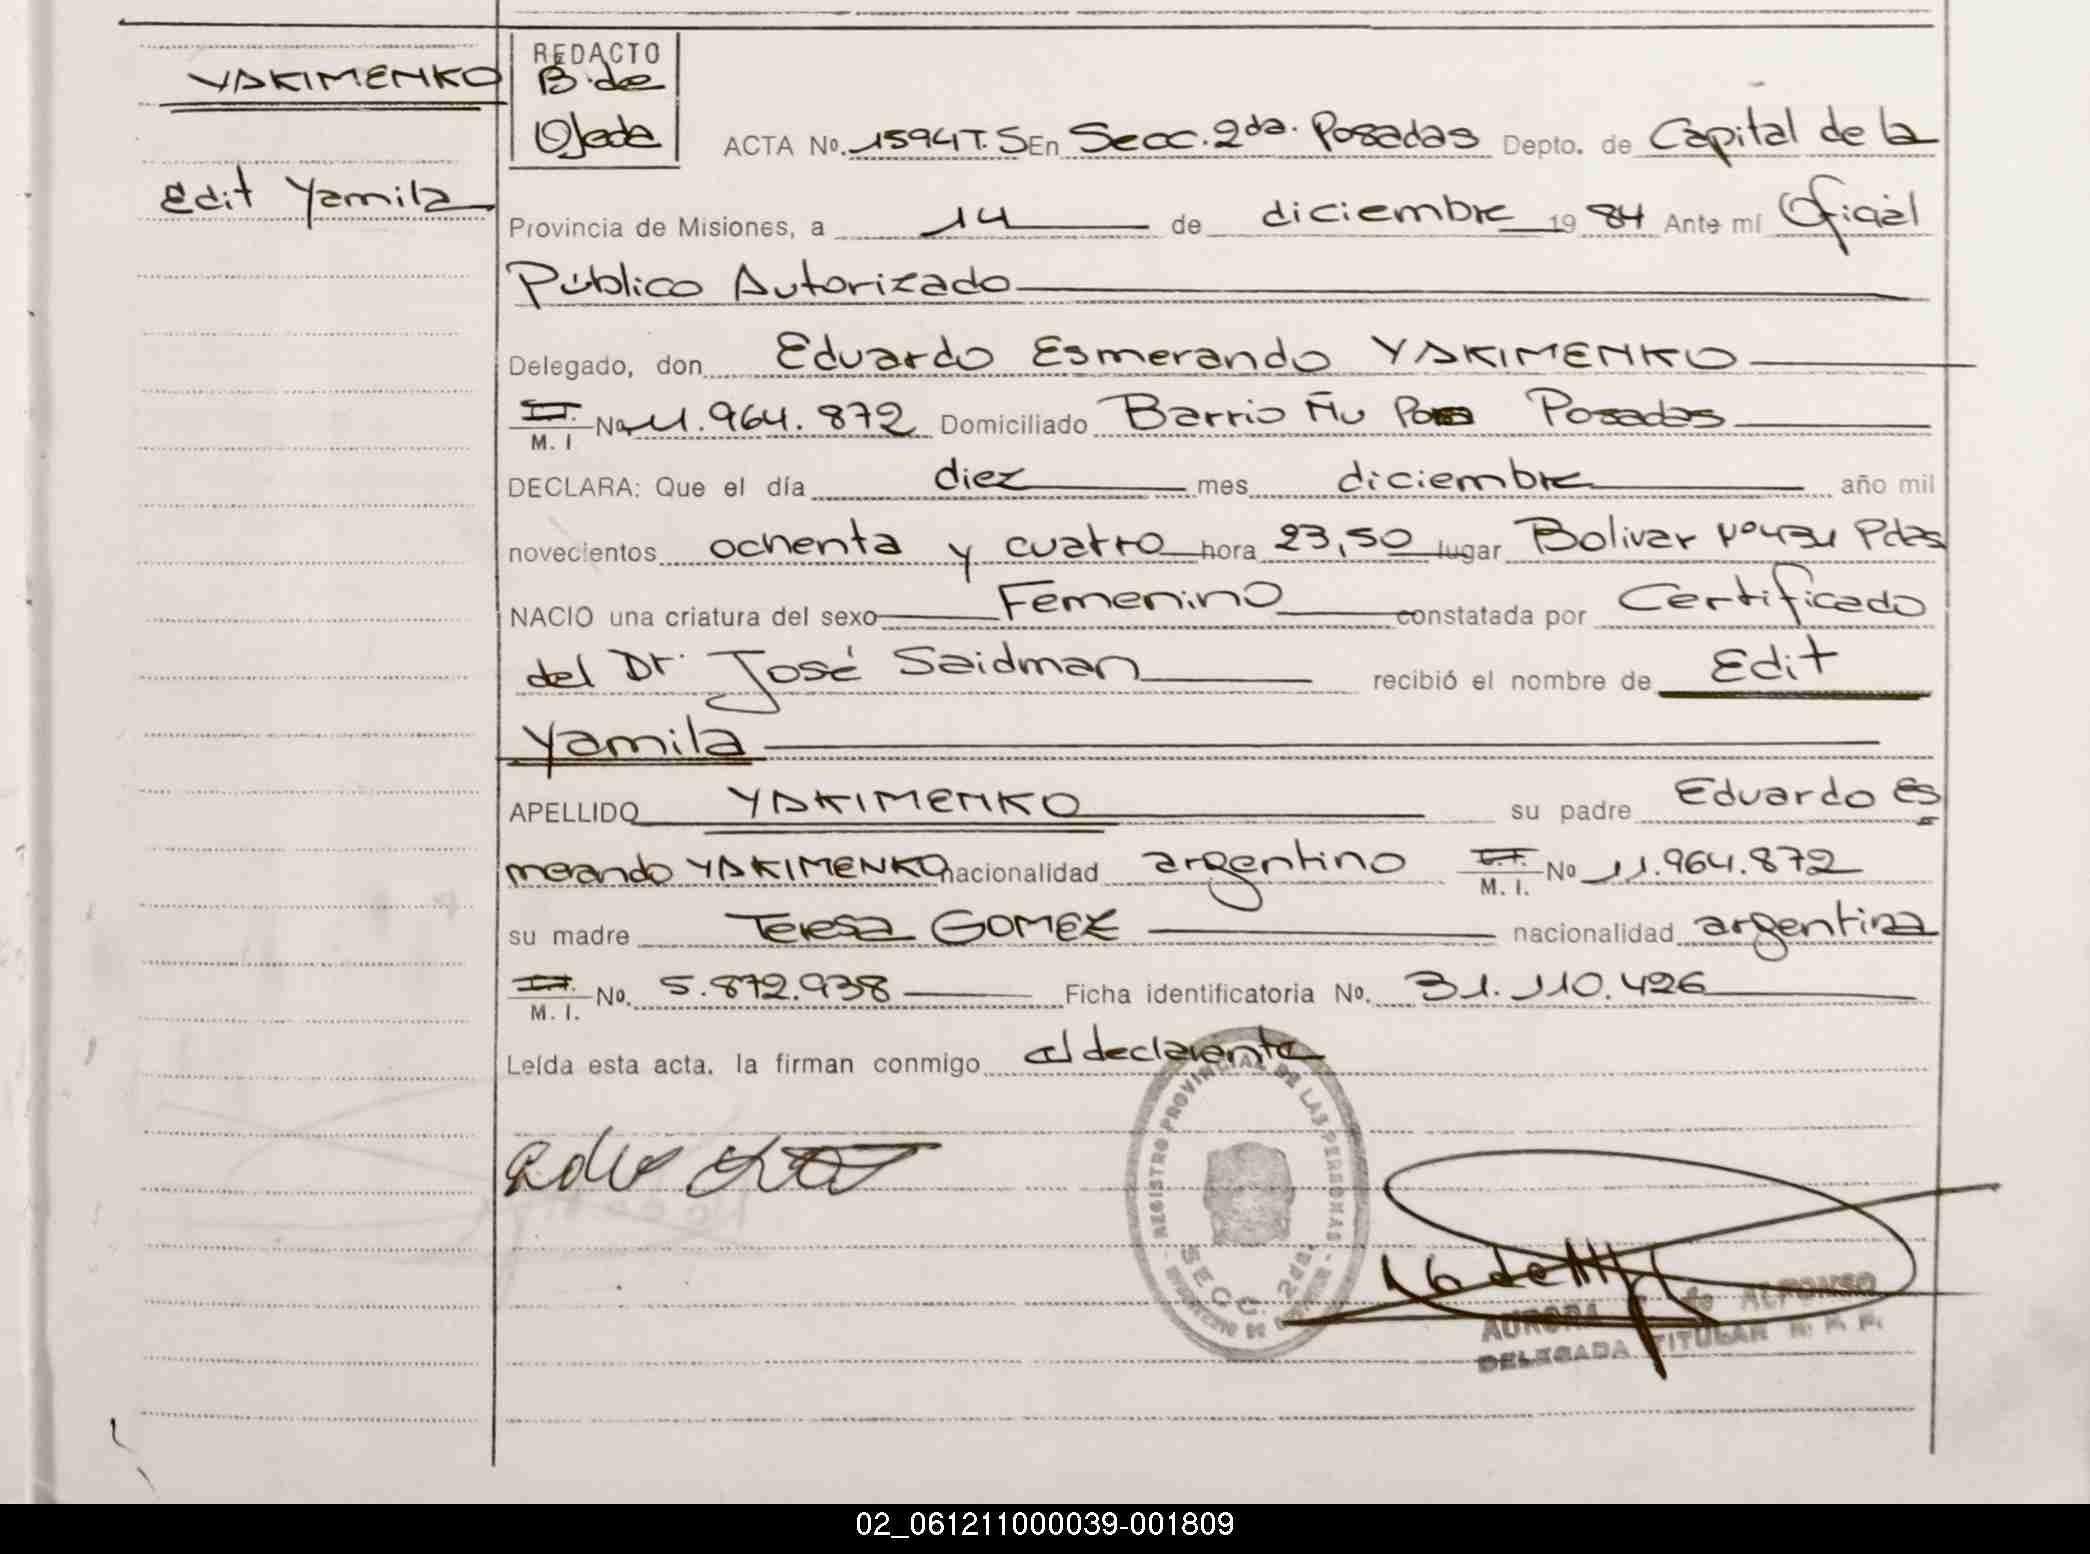 YAKIMENKO
Edit Yamila
REDACTO
B. de
Ojeda
ACTA No. 1594 T. 5 En Secc. 2da. Posadas Depto. de Capital de la
Provincia de Misiones, a 14 de diciembre 19 84 Ante mí Oficial
Público Autorizado
Delegado, don Eduardo Esmerando YAKIMENKO
M. I No. 11.964.872 Domiciliado Barrio Ñu Pora Posadas
DECLARA: Que el día diez mes diciembre año mil
novecientos ochenta y cuatro hora 23,50 lugar Bolivar Nº 431 Pdas
NACIO una criatura del sexo Femenino constatada por Certificado
del Dr. José Saidman recibió el nombre de Edit
Yamila
APELLIDO YAKIMENKO su padre Eduardo Es
merando YAKIMENKO nacionalidad argentino M. I. No 11.964.872
su madre Teresa GOMEZ nacionalidad argentina
M. I. No. 5.872.938 Ficha identificatoria No. 31.110.426
Leída esta acta, la firman conmigo el declarante
REGISTRO PROVINCIAL DE LAS PERSONAS
SECC. 2da.
AURORA de ALFONSO
DELEGADA TITULAR R. P. P.
02_061211000039-001809